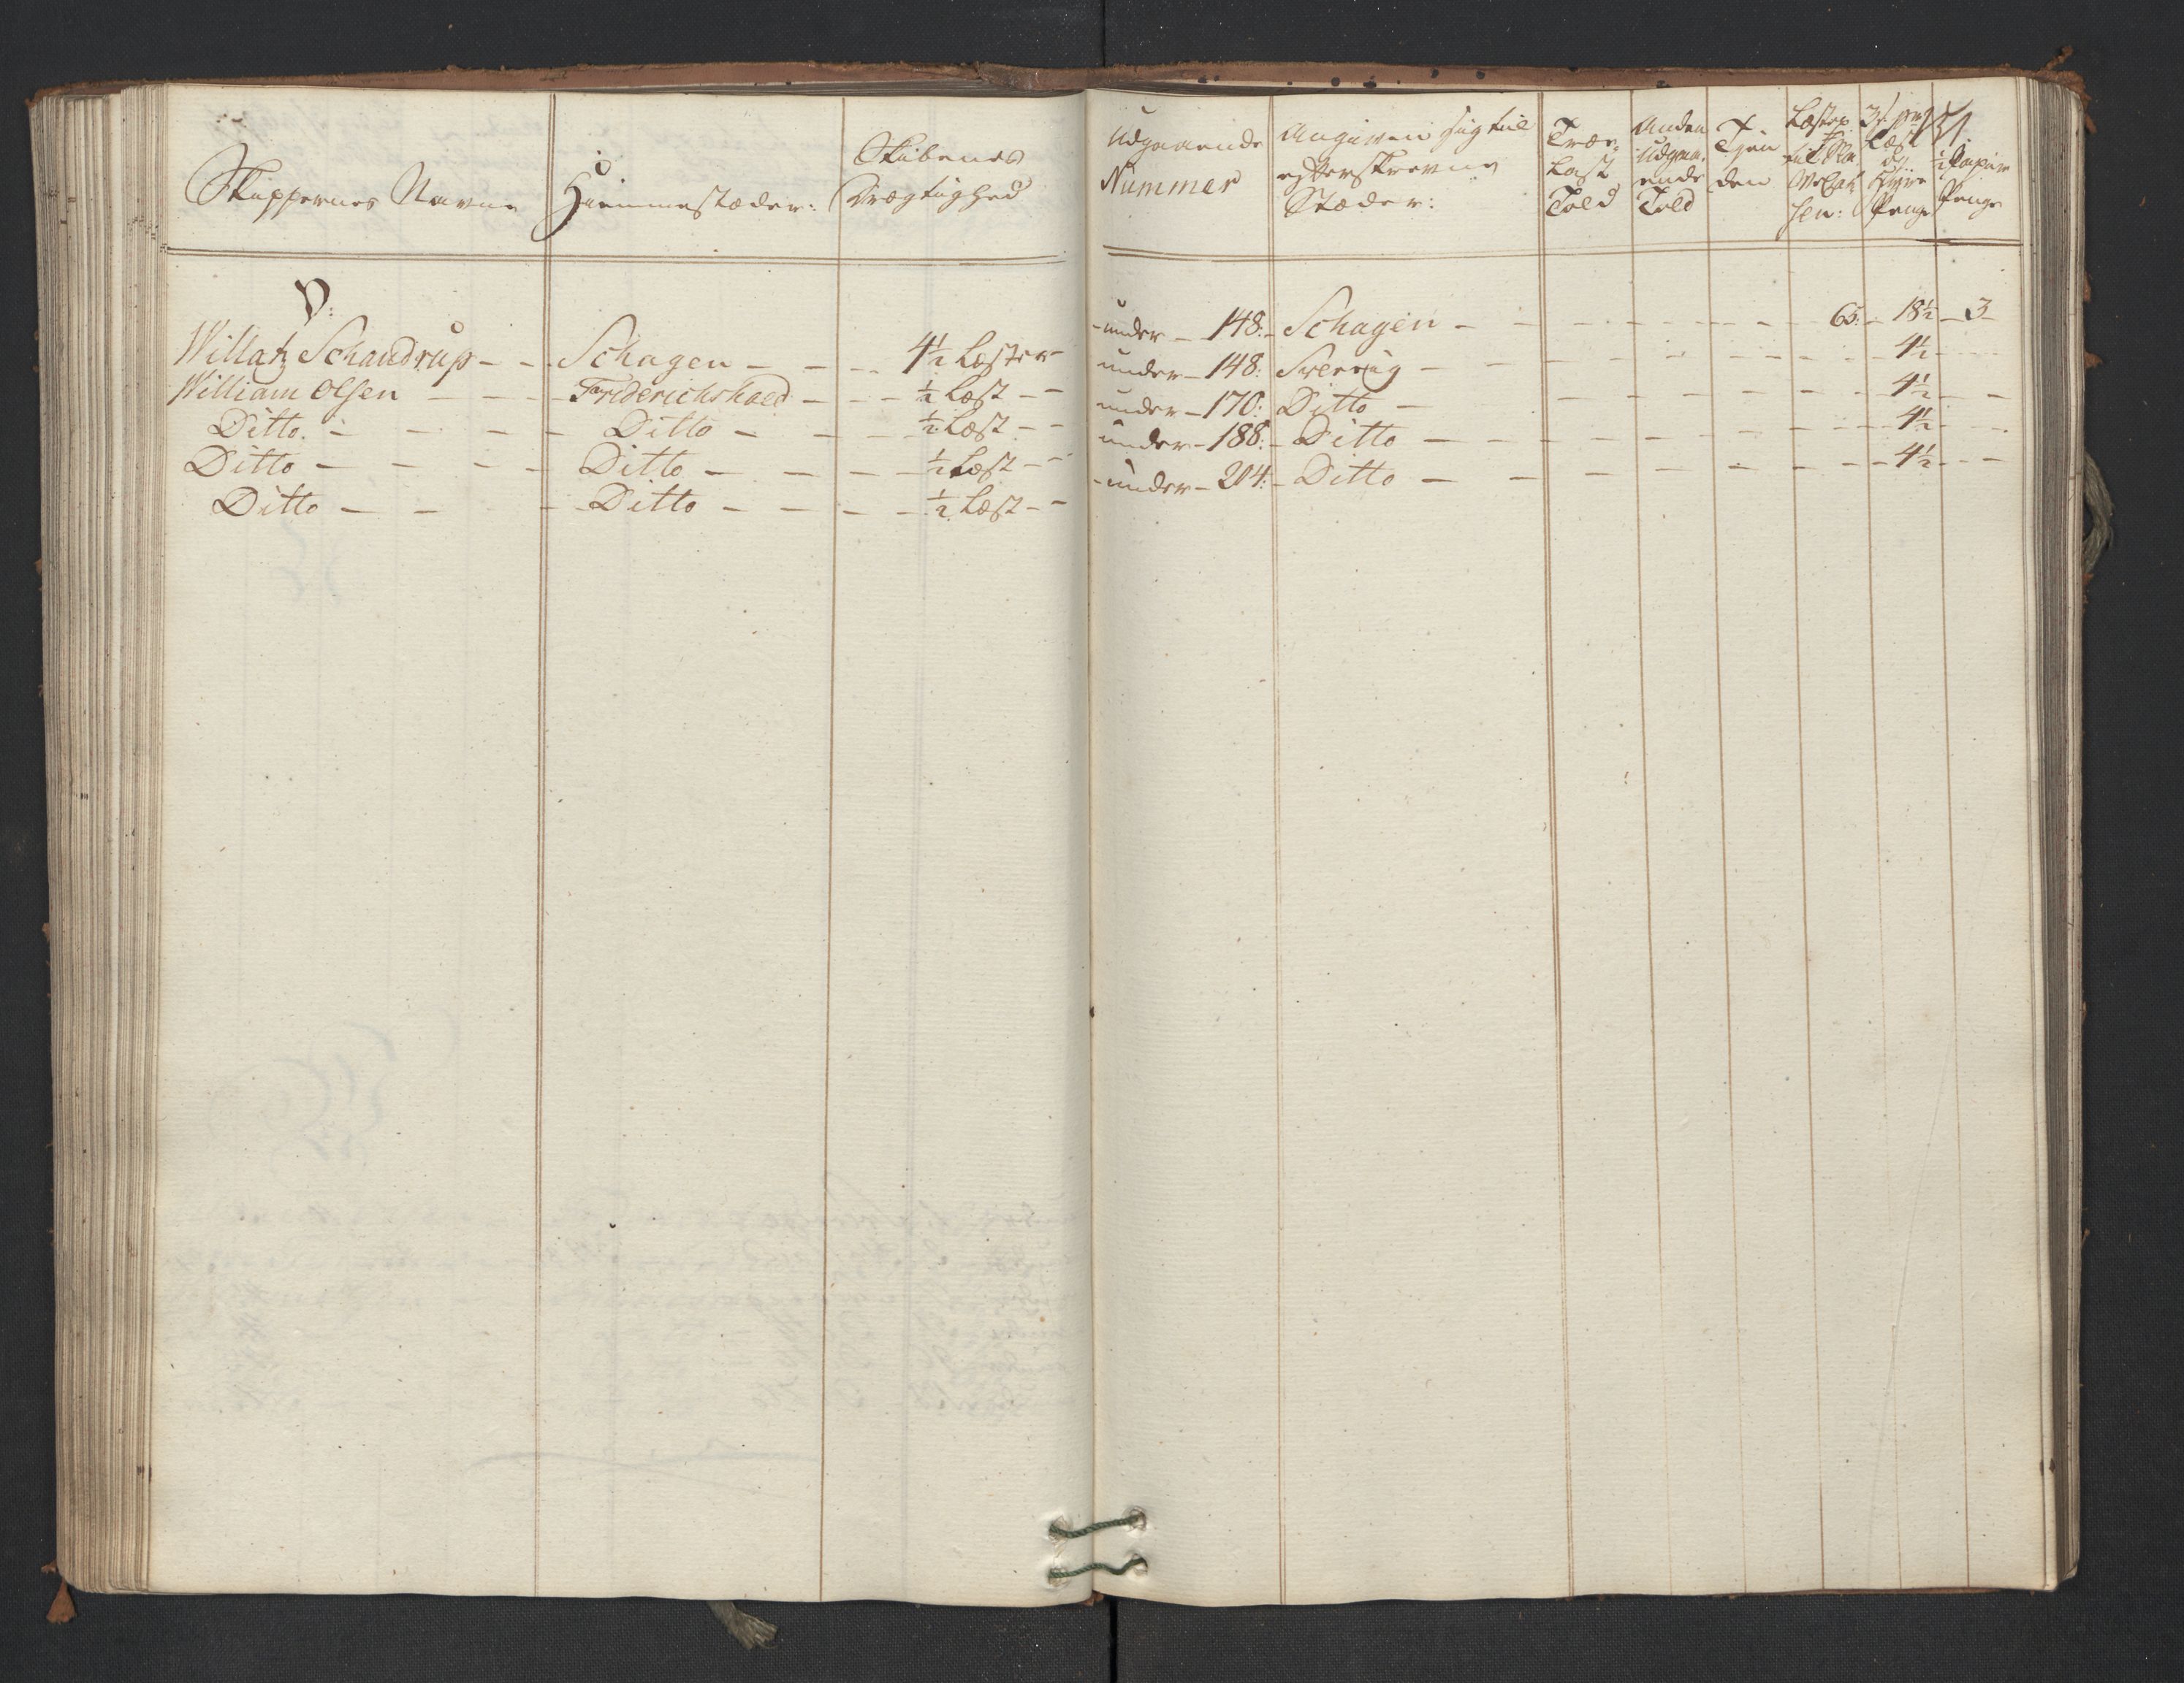 Skippernes Navne
Hiemmestæder:
Skibenes
Drægtighed
Udgaaende
Nummer
Angiven sig til
efterskrevne
Stæder:
Træe-
Last
Told
Anden
Udgaa-
ende
Told
Tjen
den
Læstep.
til
sen:
3 s. pr
Læst
og
Hyre
Penge
½ Papiir
Penge
W:
Willatz Schandrup - - Schagen - - - 4½ Læster - under - 148: - Schagen - 65: - 18½ - 3 -
William Olsen - - Friderichshald - - ½ Læst - - under - 148: Sverrig - 4½ -
Ditto - - Ditto - - ½ Læst - - under - 170: Ditto - 4½ -
Ditto - - Ditto - - ½ Læst - - under - 188: - Ditto - 4½ -
Ditto - - Ditto - - ½ Læst - - under - 204: - Ditto - 4½ -